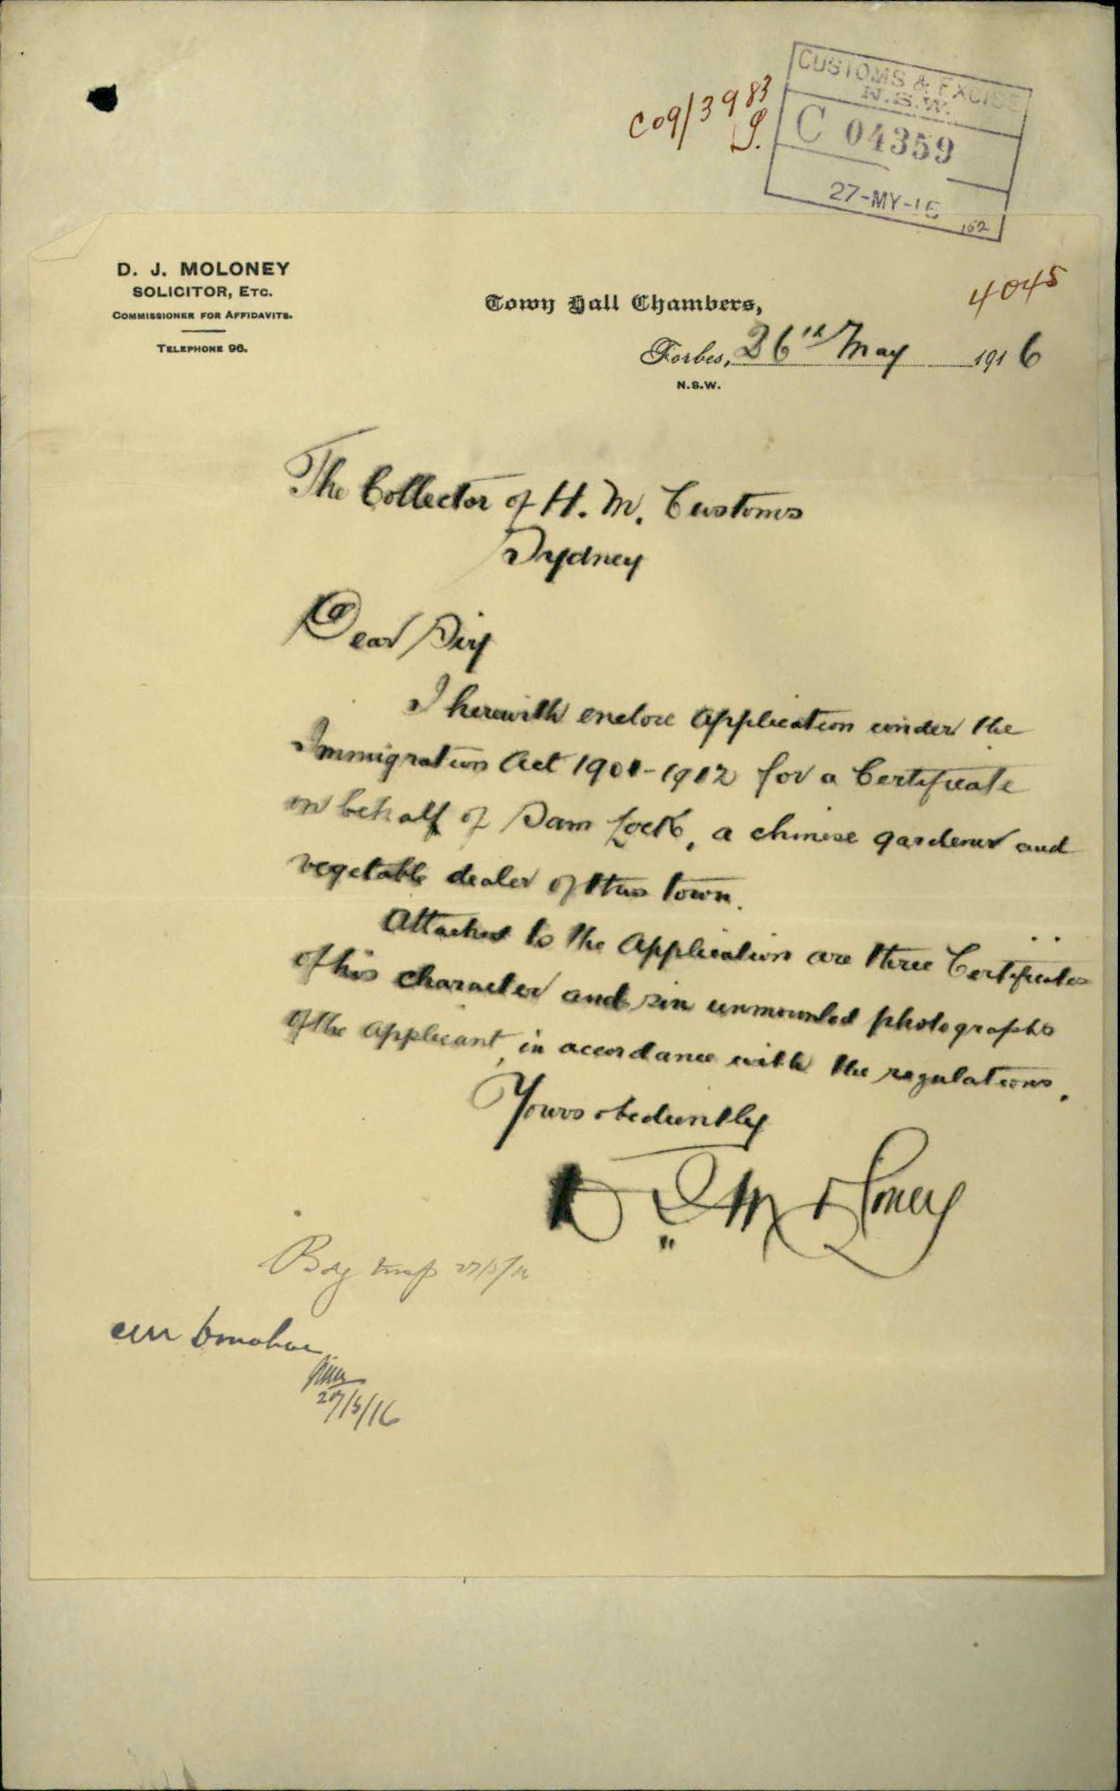 C09/3983
CUSTOMS & EXCISE
N.S.W.
C 04359
27-MY-16
D. J. MOLONEY
SOLICITOR, ETC.
COMMISSIONER FOR AFFIDAVITS.
TELEPHONE 96.
4045
Town Hall Chambers,
Forbes, 26th May 1916
N.S.W.
The Collector of H. M. Customs
Sydney
Dear Sir
I herewith enclose Application under the
Immigration Act 1901-1912 for a Certificate
on behalf of Sam Lock, a chinese gardener and
vegetable dealer of this town.
Attached to the Application are three Certificates
of his character and six unmounted photographs
of the Applicant, in accordance with the regulations.
Yours obediently
D. J. Moloney
27/5/16
Donohoe
27/5/16